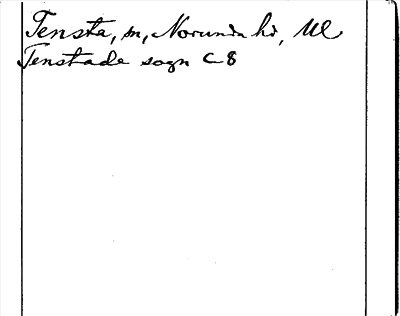 Tensta, sn, Norunda hd, Ul
Tenstade sogn C 8